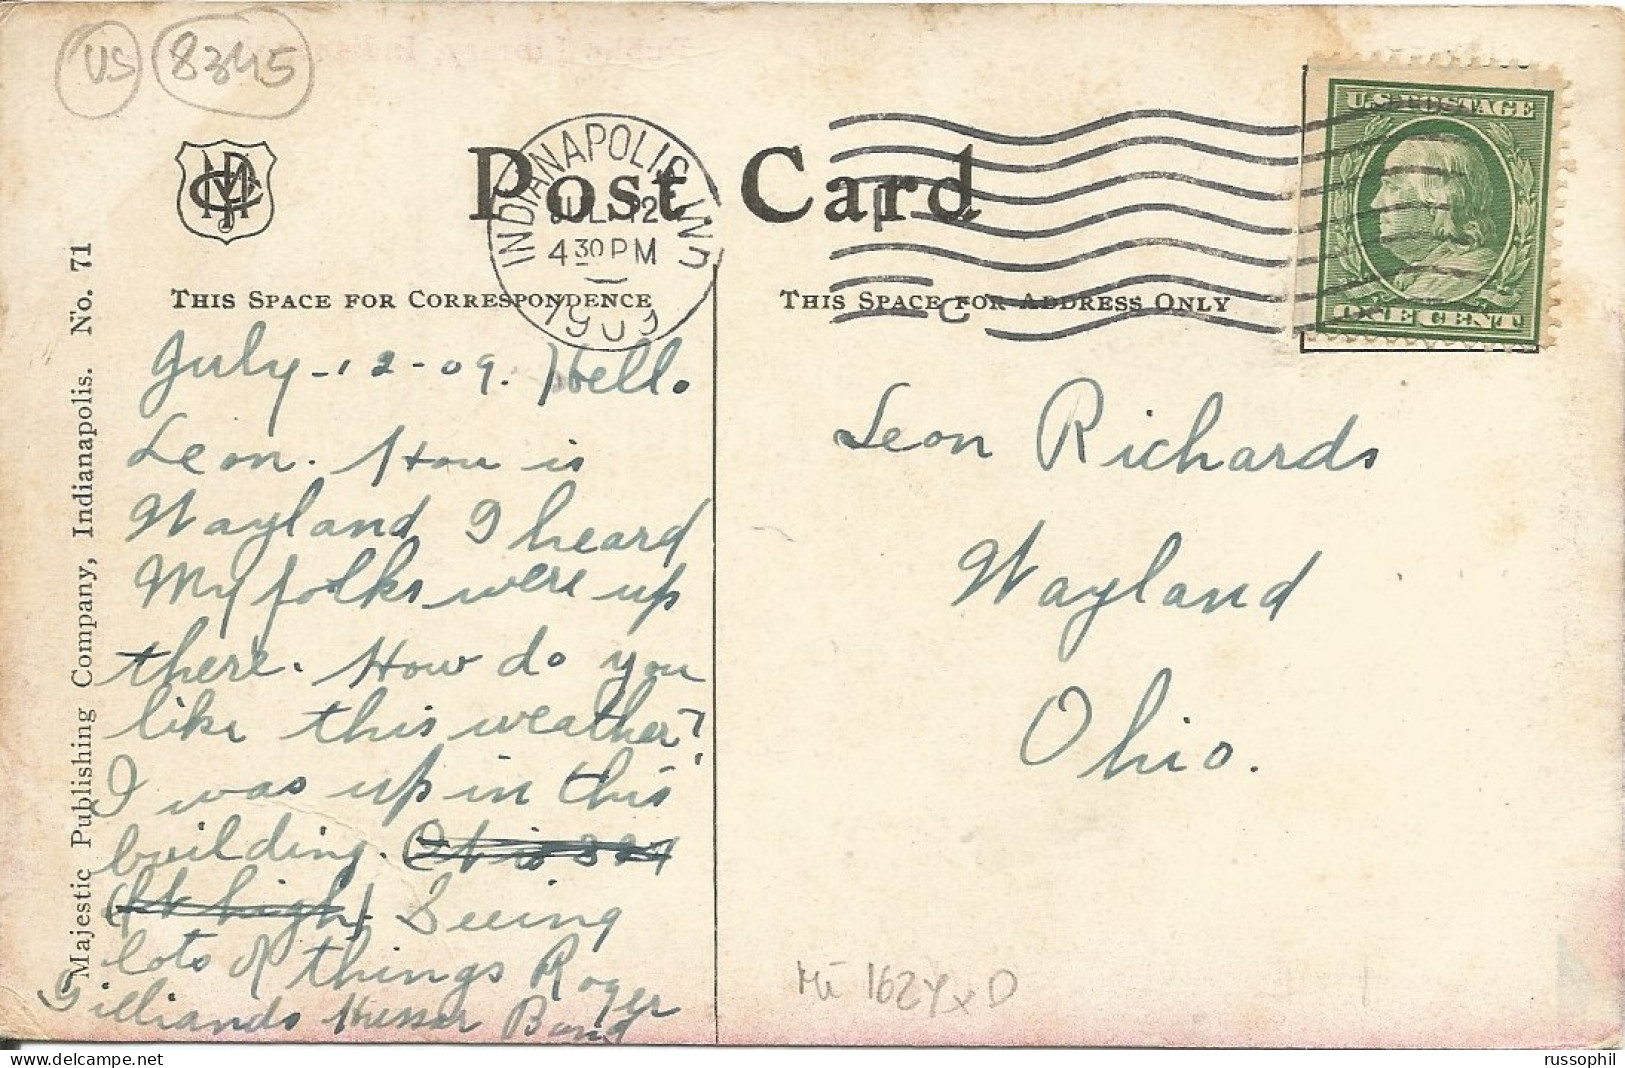 US 8345
Post Card
INDIANAPOLIS, IND.
JUL 12
4 30 PM
1909
U.S. POSTAGE
ONE CENT
THIS SPACE FOR CORRESPONDENCE
THIS SPACE FOR ADDRESS ONLY
Majestic Publishing Company, Indianapolis. No. 71
July - 12 - 09. Hello
Leon. How is
Wayland I heard
My folks were up
there. How do you
like this weather?
I was up in this
building.
ft high) Seeing
lots of things Roger
Gilliands Husser Band
Leon Richards
Wayland
Ohio.
Mi 162 Y x D
russophil
www.delcampe.net